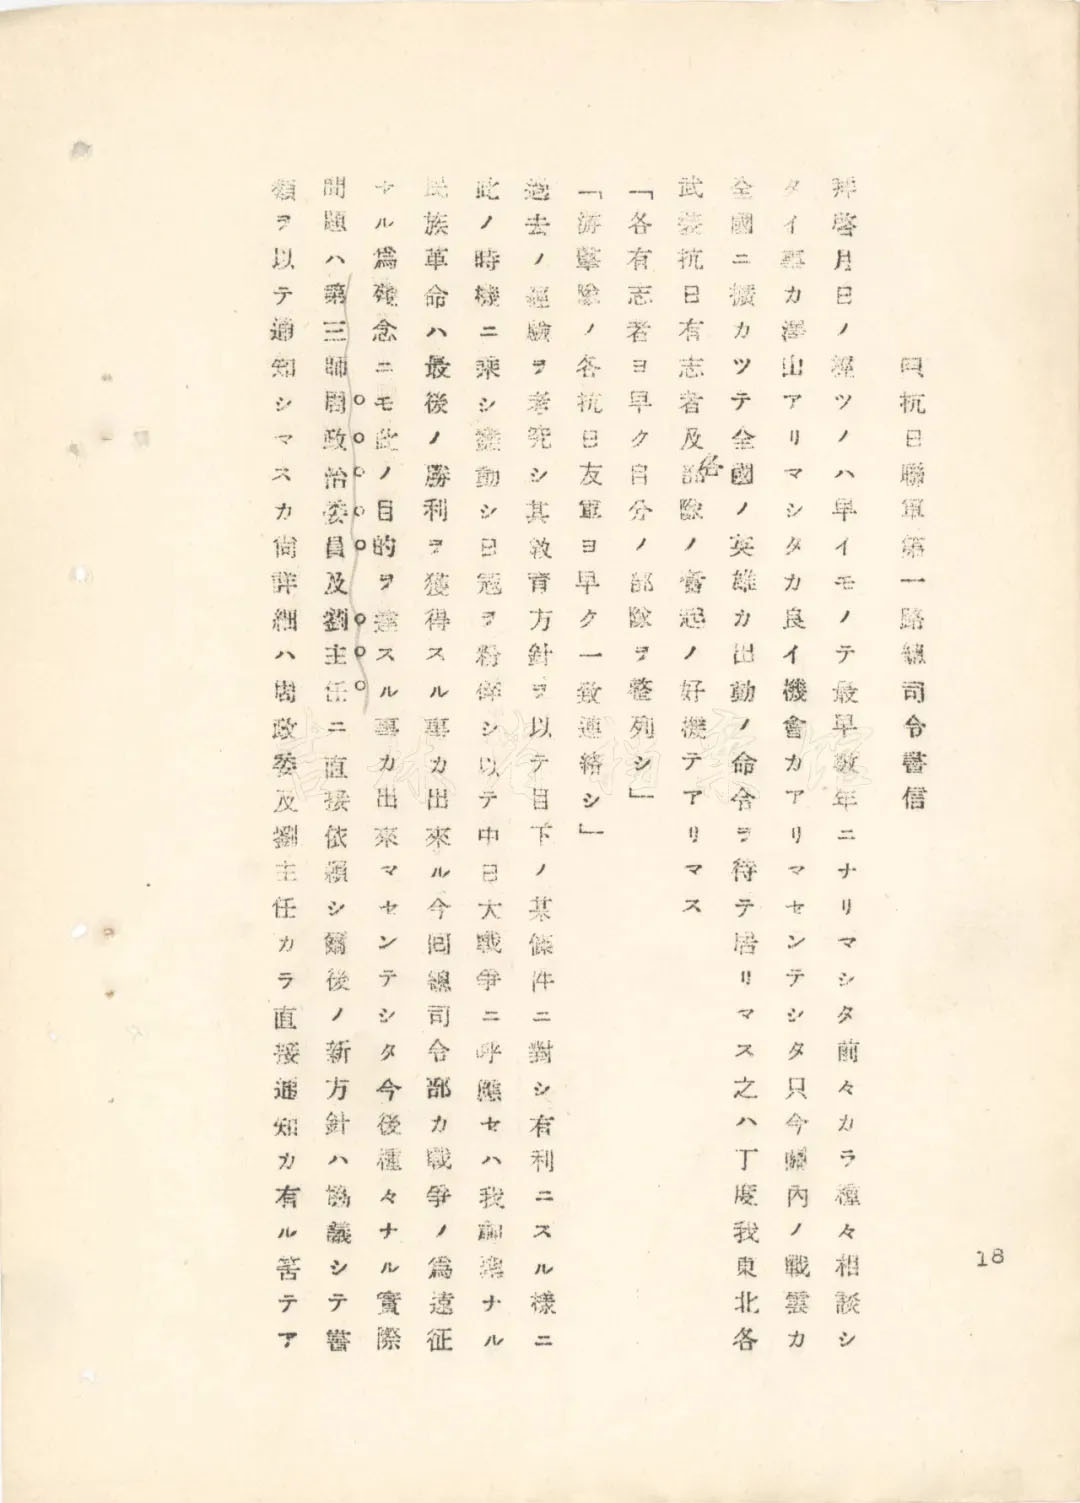 抗日聯軍第一路總司令書信
拜啓月日ノ經ツノハ早イモノテ最早數年ニナリマシタ前々カラ種々相談シ
タイ事カ澤山アリマシタカ良イ機會カアリマセンテシタ只今關內ノ戰雲カ
全國ニ擴カツテ全國ノ英雄カ出動ノ命令ヲ待テ居リマス之ハ丁度我東北各
武裝抗日有志者及各部隊ノ奮起ノ好機テアリマス
「各有志者ヨ早ク自分ノ部隊ヲ整列シ」
「游擊隊ノ各抗日友軍ヨ早ク一致連絡シ」
過去ノ經驗ヲ考究シ其敎育方針ヲ以テ目下ノ某條件ニ對シ有利ニスル樣ニ
此ノ時機ニ乘シ蠢動シ日寇ヲ粉倂シ以テ中日大戰爭ニ呼應セハ我神聖ナル
民族革命ハ最後ノ勝利ヲ獲得スル事カ出來ル今囘總司令部カ戰爭ノ爲遠征
セル爲殘念ニモ此ノ目的ヲ達スル事カ出來マセンテシタ今後種々ナル實際
問題ハ第三師周政治委員及劉主任ニ直接依賴シ爾後ノ新方針ハ協議シテ書
類ヲ以テ通知シマスカ尙詳細ハ周政委及劉主任カラ直接通知カ有ル筈テア
18
吉林省檔案館